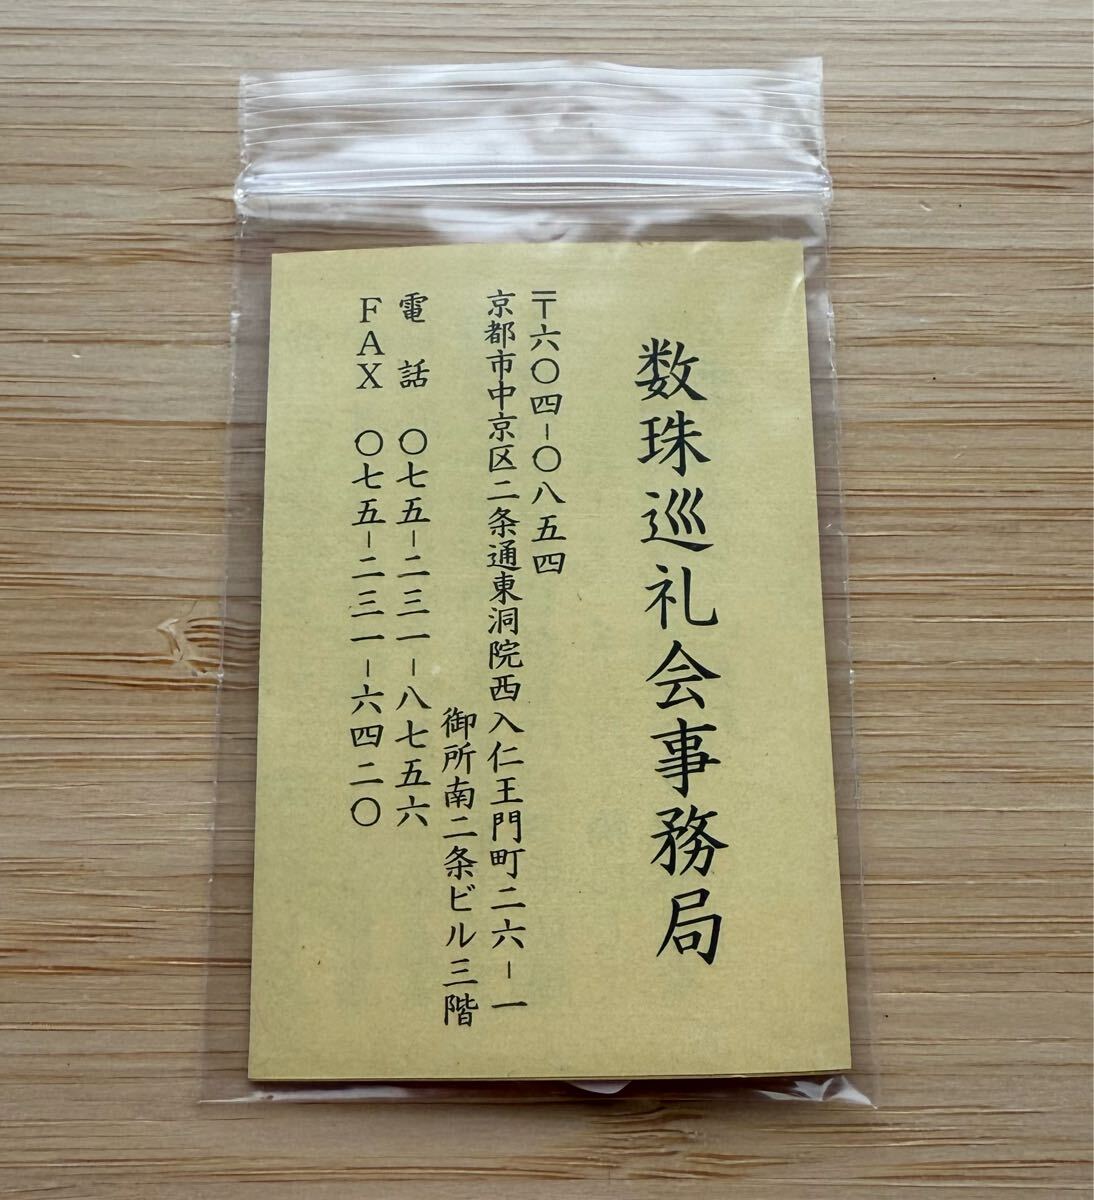 数珠巡礼会事務局
〒六〇四-〇八五四
京都市中京区二条通東洞院西入仁王門町二六-一
御所南二条ビル三階
電話 〇七五-二三一-八七五六
FAX 〇七五-二三一-六四二〇